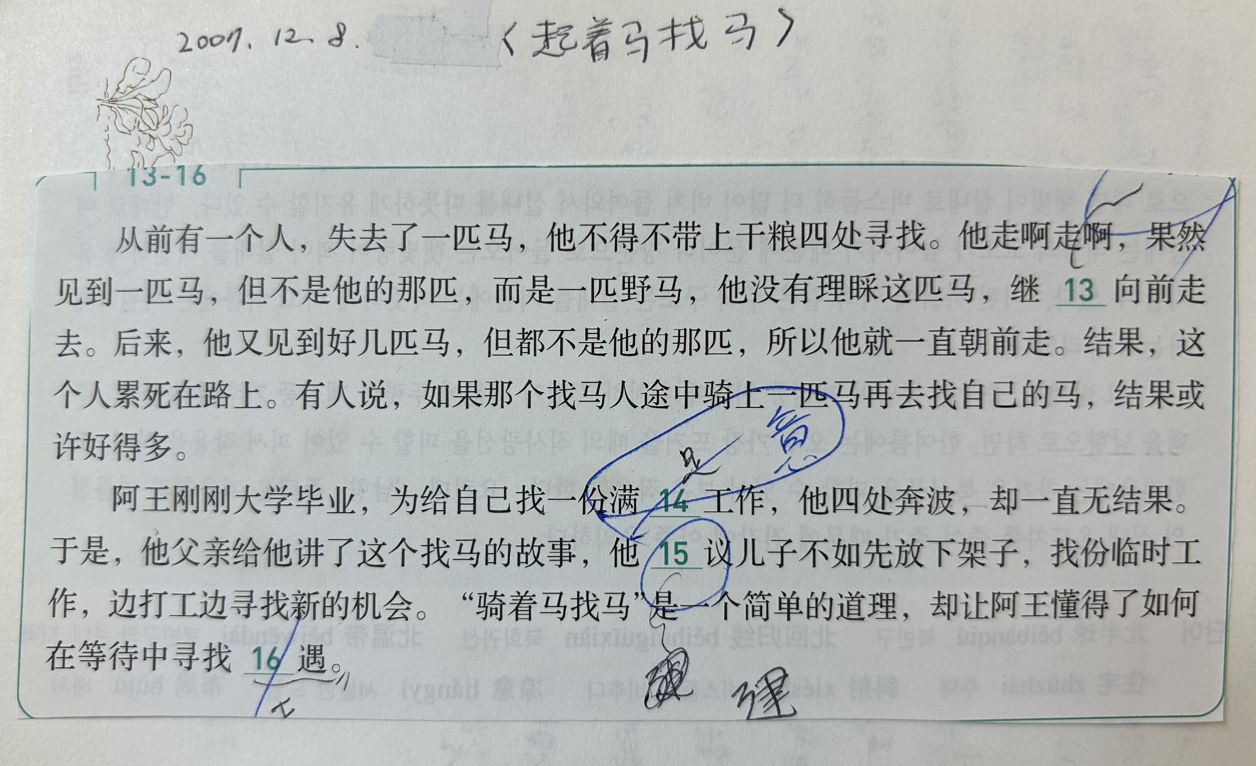 2007. 12. 8. 〈起着马找马〉
13-16
从前有一个人，失去了一匹马，他不得不带上干粮四处寻找。他走啊走啊，果然
见到一匹马，但不是他的那匹，而是一匹野马，他没有理睬这匹马，继 13 向前走
去。后来，他又见到好几匹马，但都不是他的那匹，所以他就一直朝前走。结果，这
个人累死在路上。有人说，如果那个找马人途中骑上一匹马再去找自己的马，结果或
许好得多。
意
阿王刚刚大学毕业，为给自己找一份满 14 工作，他四处奔波，却一直无结果。
于是，他父亲给他讲了这个找马的故事，他 15 议儿子不如先放下架子，找份临时工
作，边打工边寻找新的机会。“骑着马找马”是一个简单的道理，却让阿王懂得了如何
在等待中寻找 16 遇。
建